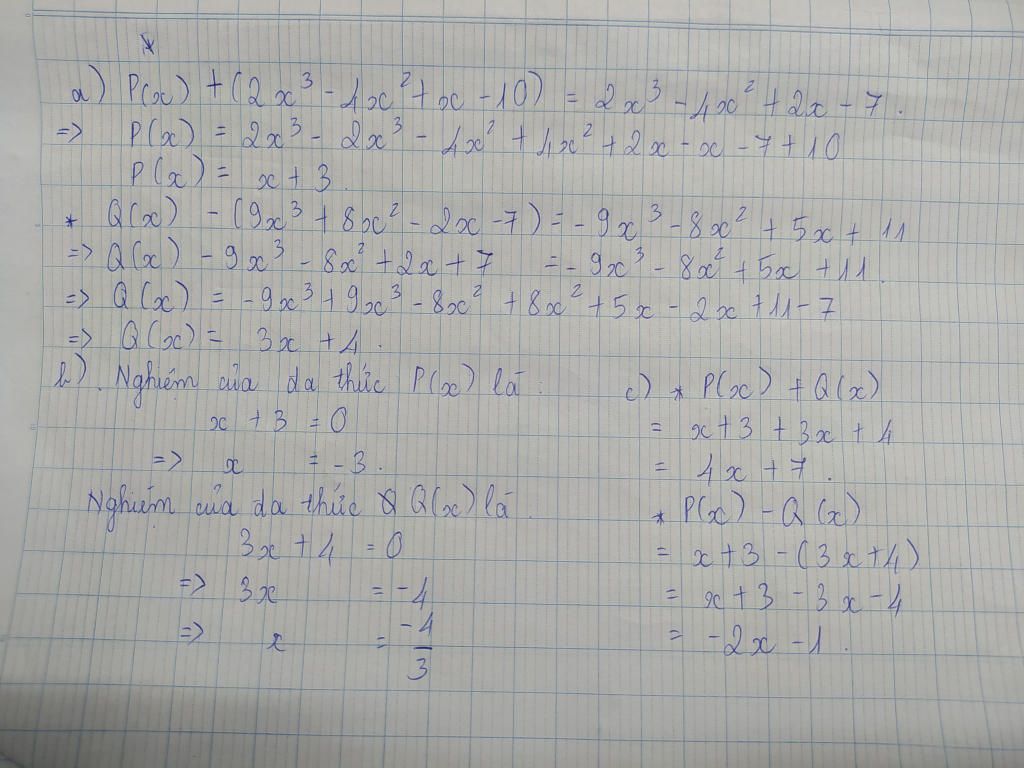 a) P(x) + (2x³ - 4x² + x - 10) = 2x³ - 4x² + 2x - 7.
=> P(x) = 2x³ - 2x³ - 4x² + 4x² + 2x - x - 7 + 10
P(x) = x + 3.
* Q(x) - (9x³ + 8x² - 2x - 7) = - 9x³ - 8x² + 5x + 11
=> Q(x) - 9x³ - 8x² + 2x + 7 = - 9x³ - 8x² + 5x + 11.
=> Q(x) = - 9x³ + 9x³ - 8x² + 8x² + 5x - 2x + 11 - 7
=> Q(x) = 3x + 4.
b). Nghiệm của đa thức P(x) là :
x + 3 = 0
=> x = - 3.
Nghiệm của đa thức Q(x) là
3x + 4 = 0
=> 3x = - 4
=> x = -4/3
c) * P(x) + Q(x)
= x + 3 + 3x + 4
= 4x + 7.
* P(x) - Q(x)
= x + 3 - (3x + 4)
= x + 3 - 3x - 4
= - 2x - 1.